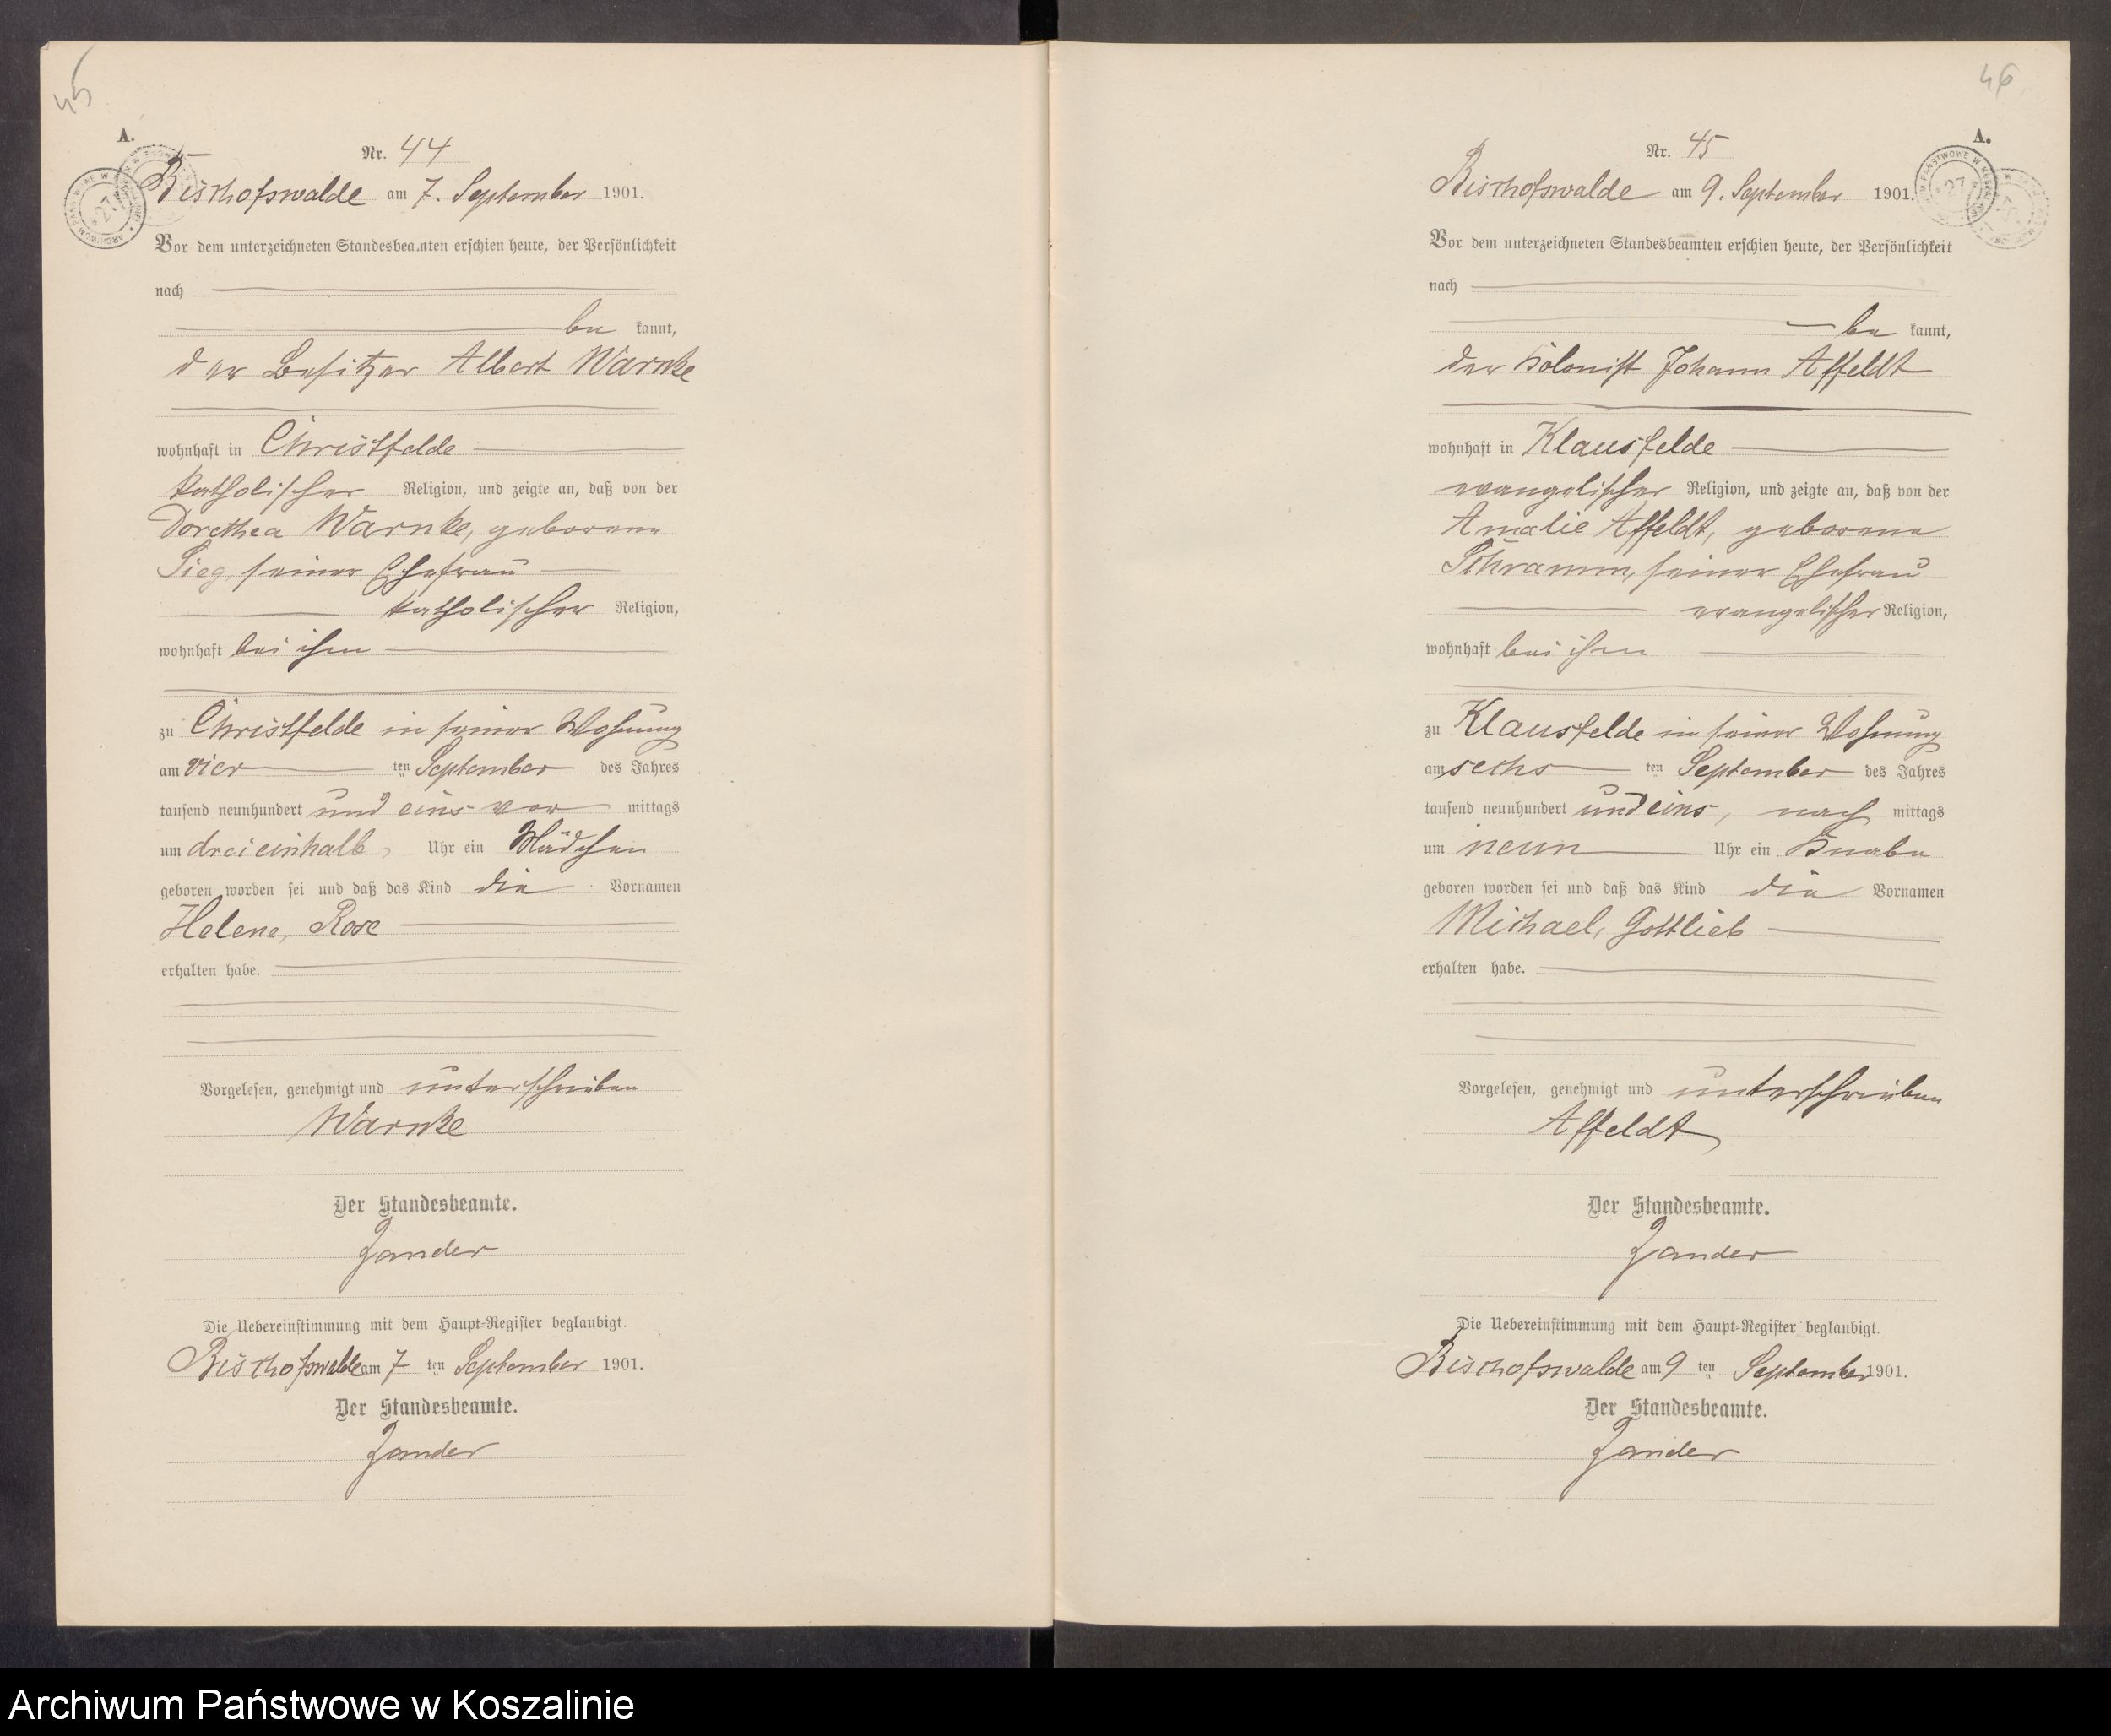 45
A.
Nr. 44
Bischofswalde am 7. September 1901.
Vor dem unterzeichneten Standesbeamten erschien heute, der Persönlichkeit
nach
be kannt,
der Besitzer Albert Warnke
wohnhaft in Christfelde
katholischer Religion, und zeigte an, daß von der
Dorethea Warnke, geborene
Sieg, seiner Ehefrau
katholischer Religion,
wohnhaft bei ihm
zu Christfelde in seiner Wohnung
am vier ten September des Jahres
tausend neunhundert und eins vor mittags
um dreieinhalb Uhr ein Mädchen
geboren worden sei und daß das Kind die Vornamen
Helene, Rose
erhalten habe.
Vorgelesen, genehmigt und unterschrieben
Warnke
Der Standesbeamte.
Zander
Die Uebereinstimmung mit dem Haupt-Register beglaubigt.
Bischofswalde am 7 ten September 1901.
Der Standesbeamte.
Zander
46
A.
Nr. 45
Bischofswalde am 9. September 1901.
Vor dem unterzeichneten Standesbeamten erschien heute, der Persönlichkeit
nach
be kannt,
der Kolonist Johann Affeldt
wohnhaft in Klausfelde
evangelischer Religion, und zeigte an, daß von der
Amalie Affeldt, geborene
Schramm, seiner Ehefrau
evangelischer Religion,
wohnhaft bei ihm
zu Klausfelde in seiner Wohnung
am sechs ten September des Jahres
tausend neunhundert und eins, nach mittags
um neun Uhr ein Knabe
geboren worden sei und daß das Kind die Vornamen
Michael, Gottlieb
erhalten habe.
Vorgelesen, genehmigt und unterschrieben
Affeldt
Der Standesbeamte.
Zander
Die Uebereinstimmung mit dem Haupt-Register beglaubigt.
Bischofswalde am 9 ten September 1901.
Der Standesbeamte.
Zander
Archiwum Państwowe w Koszalinie